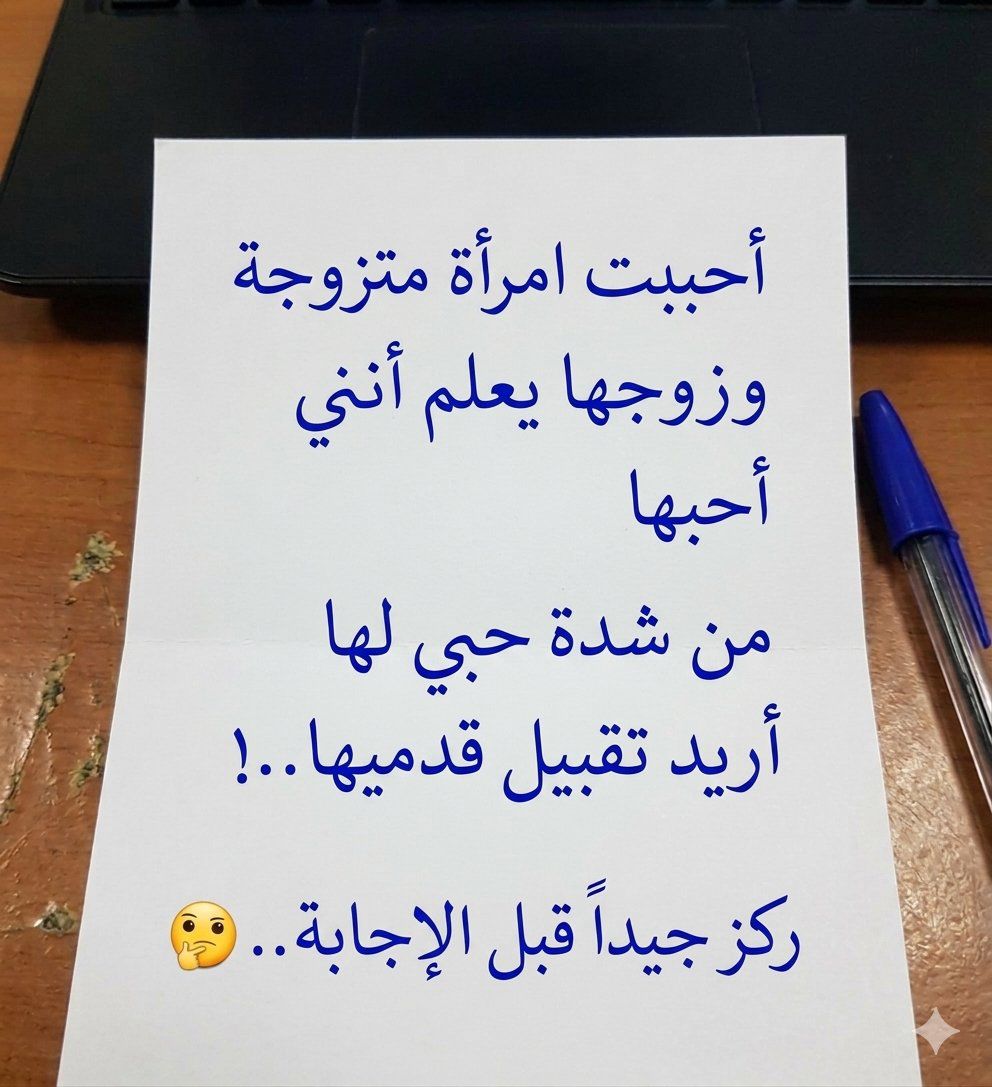 أحببت امرأة متزوجة
وزوجها يعلم أنني
أحبها
من شدة حبي لها
أريد تقبيل قدميها..!
ركز جيداً قبل الإجابة..🤔